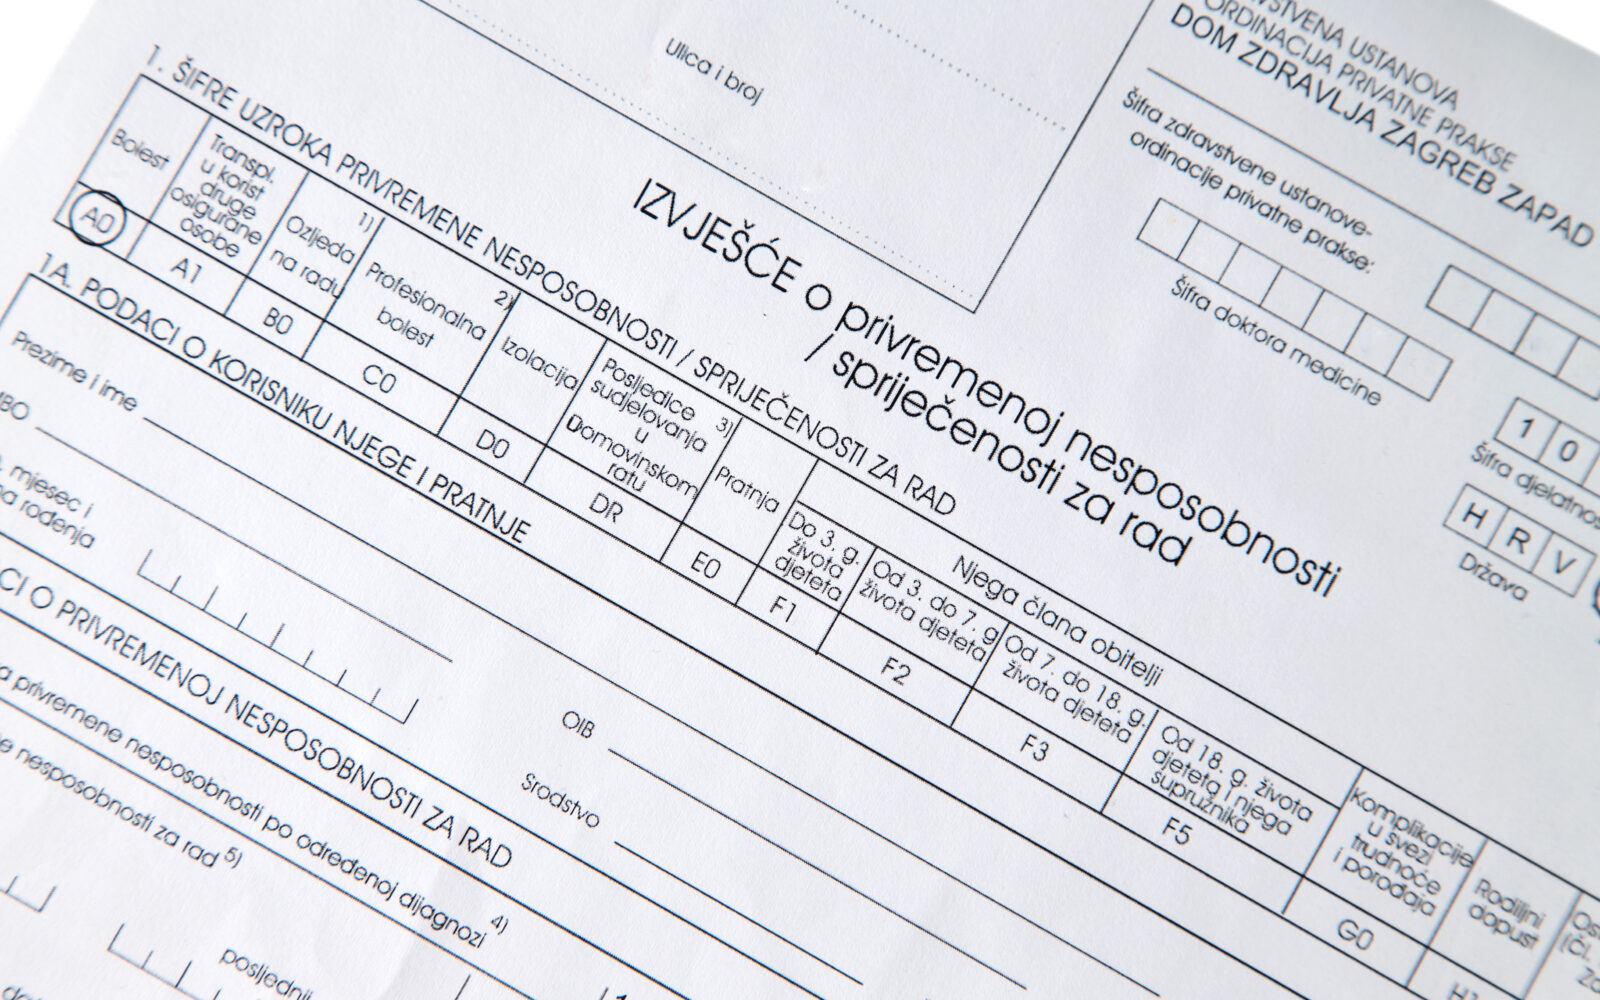 ORDINACIJA PRIVATNE PRAKSE
DOM ZDRAVLJA ZAGREB ZAPAD
Šifra zdravstvene ustanove-
ordinacije privatne prakse:
Šifra doktora medicine
1 0
Šifra djelatnos
H R V
Država
Ulica i broj
IZVJEŠĆE o privremenoj nesposobnosti
/ spriječenosti za rad
1. ŠIFRE UZROKA PRIVREMENE NESPOSOBNOSTI / SPRIJEČENOSTI ZA RAD
Bolest
A0
Transpl.
u korist
druge
osigurane
osobe
A1
1)
Ozljeda
na radu
B0
2)
Profesionalna
bolest
C0
Izolacija
D0
3)
Posljedice
sudjelovanja
u
Domovinskom
ratu
DR
Pratnja
E0
Njega člana obitelji
Do 3. g.
života
djeteta
F1
Od 3. do 7. g
života djeteta
F2
Od 7. do 18. g.
života djeteta
F3
Od 18. g. života
djeteta i njega
supružnika
F5
Komplikacije
u svezi
trudnoće
i porođaja
G0
Rodiljni
dopust
1A. PODACI O KORISNIKU NJEGE I PRATNJE
Prezime i ime
MBO
mjesec i
na rođenja
OIB
Srodstvo
CI O PRIVREMENOJ NESPOSOBNOSTI ZA RAD
a privremene nesposobnosti po određenoj dijagnozi 4)
e nesposobnosti za rad 5)
posljednji